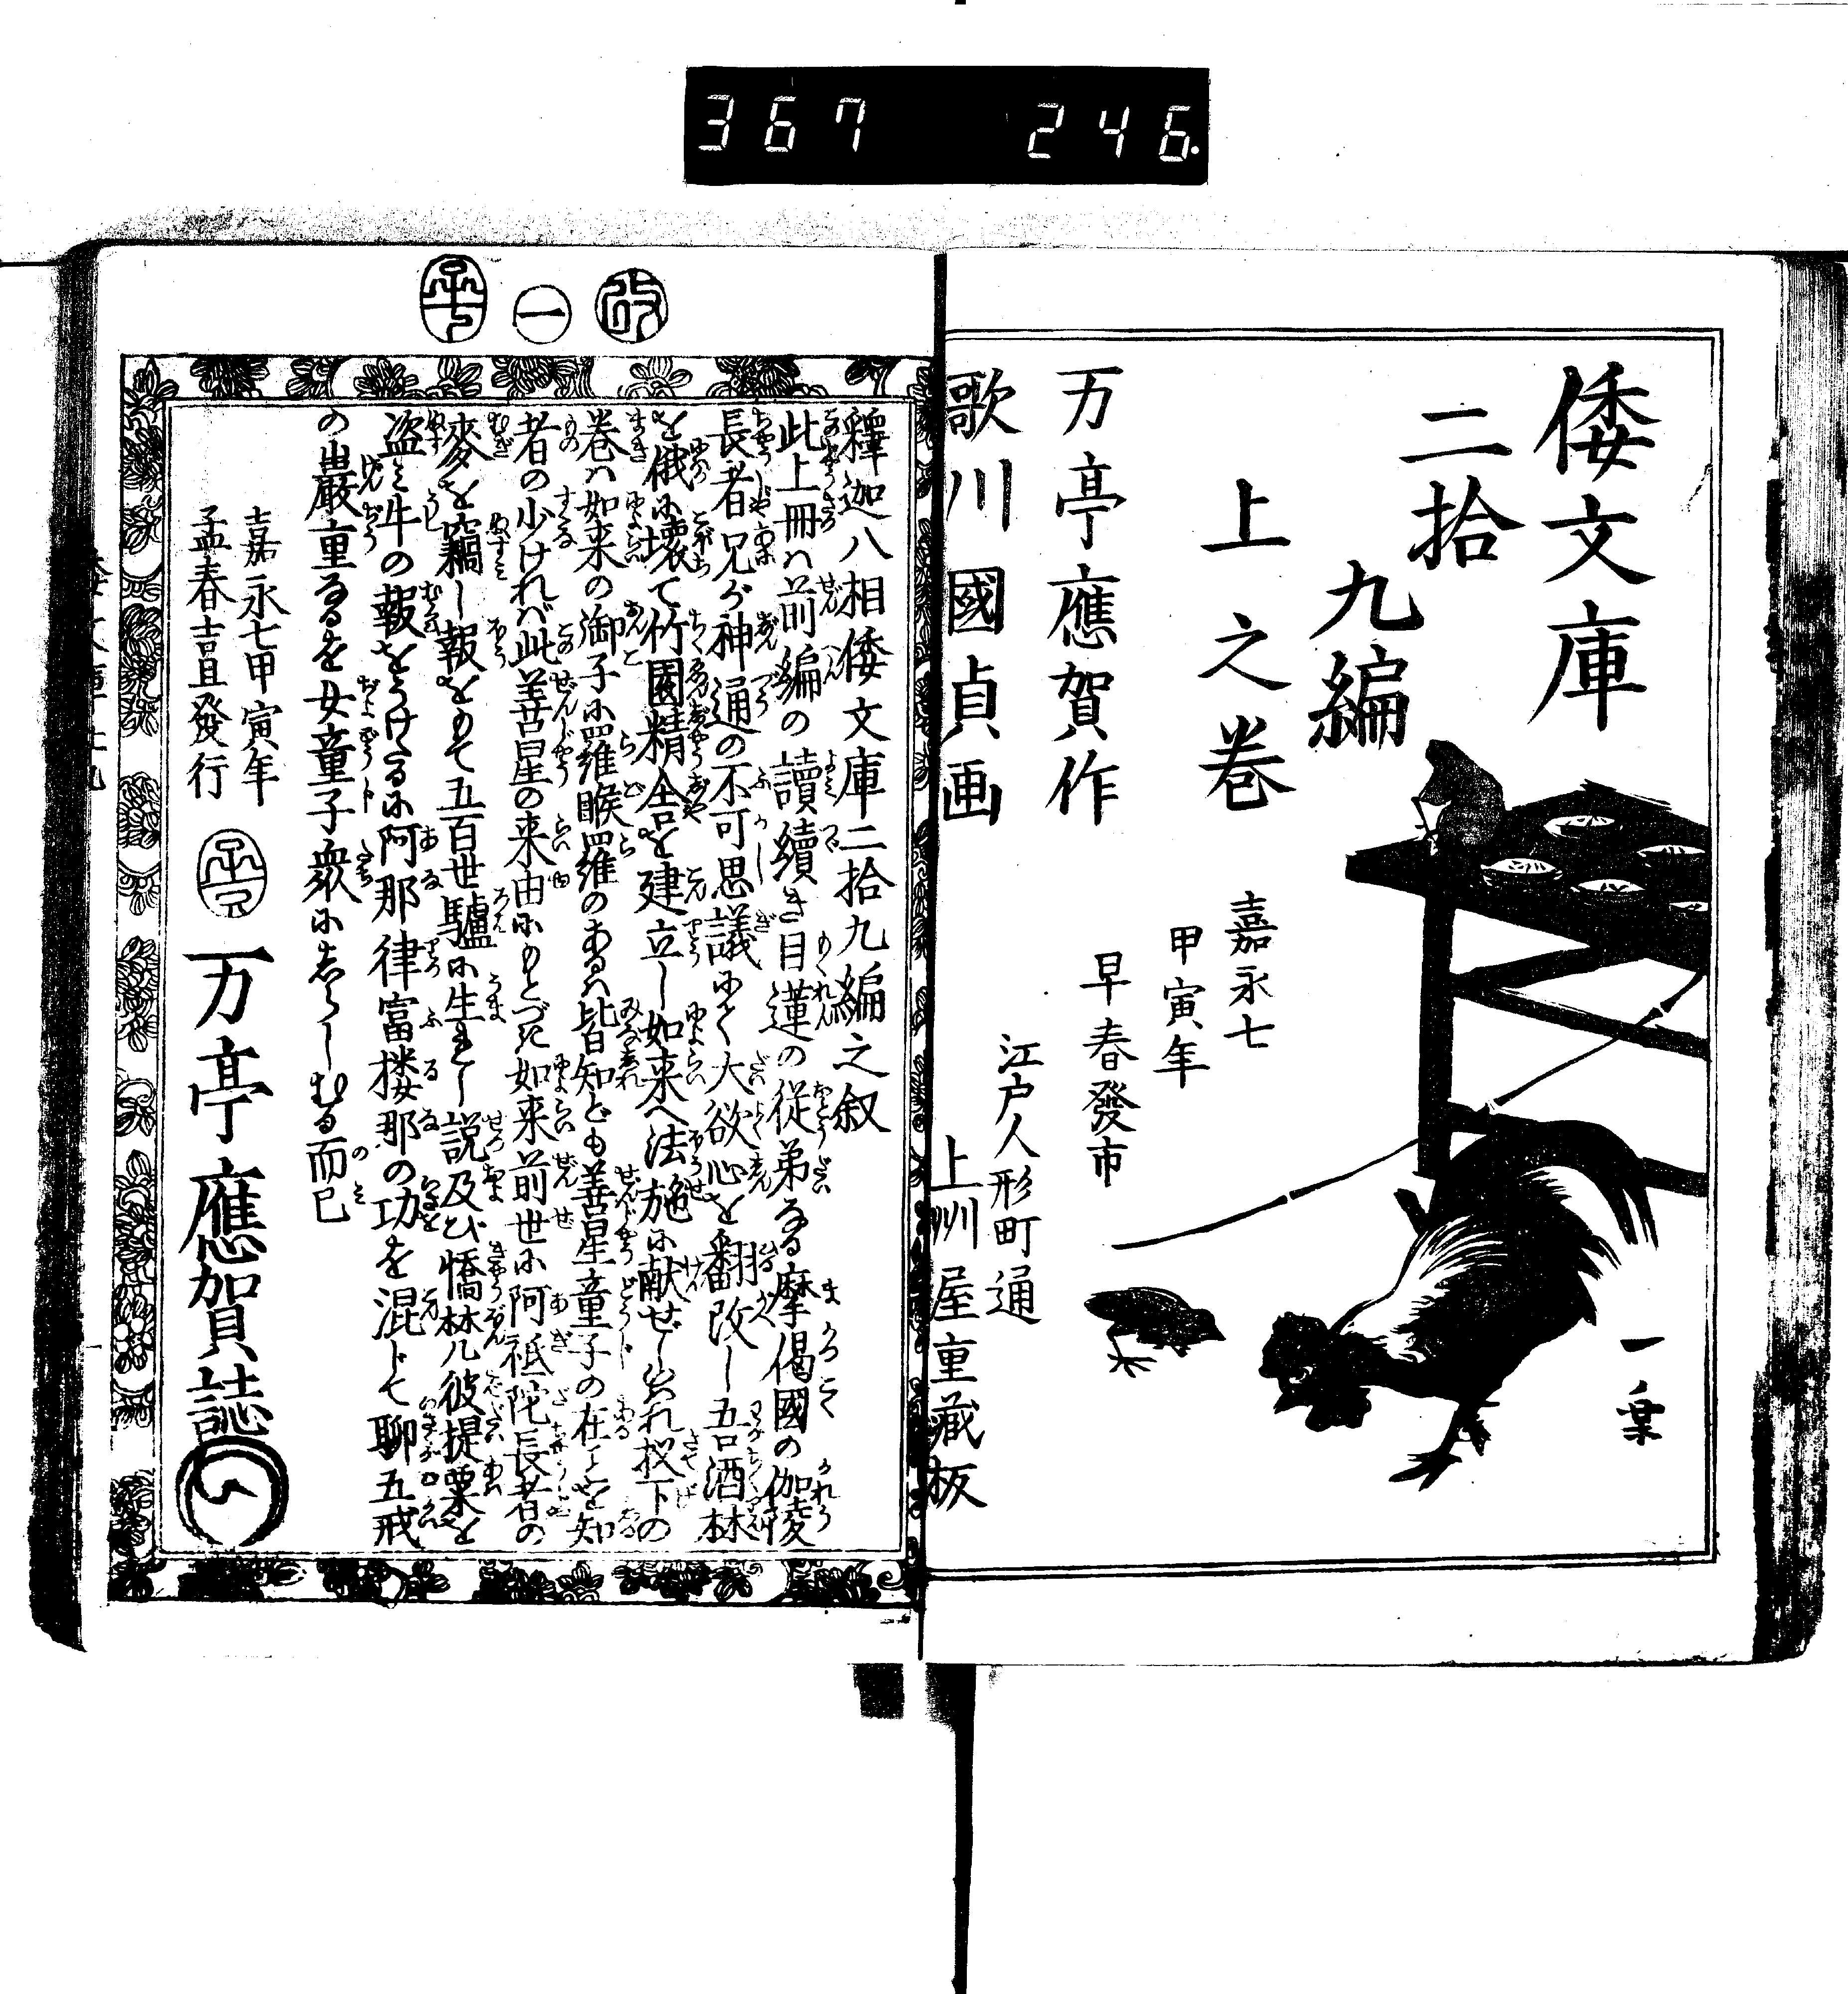 367 246.
倭文庫
二拾
九編
上之巻
万亭應賀作
歌川國貞画
嘉永七
甲寅年
早春發市
江戸人形町通
上州屋重藏板
一葉
改
一
釋迦八相倭文庫二拾九編之叙
此上冊ハ前編の讀續き目蓮の従弟なる摩偈國の伽陵
長者兄が神通の不可思議にて大欲心を翻改し吾酒林
を俄に壊て竹園精舎を建立し如来へ法施に献ぜし出れ拟下の
巻ハ如来の御子に羅睺羅のあるハ皆知ども善星童子の在しを知
者の少ければ此善星の来由にもとづき如来前世に阿祗陀長者の
麥を竊し報をもて五百世驢に生ぜし説及び憍梵凡彼提粟を
盗ミ牛の報をうけたるに阿那律富楼那の功を混じて聊五戒
の嚴重なるを女童子衆にしらしむる而已
嘉永七甲寅年
孟春吉旦發行
万亭應賀誌